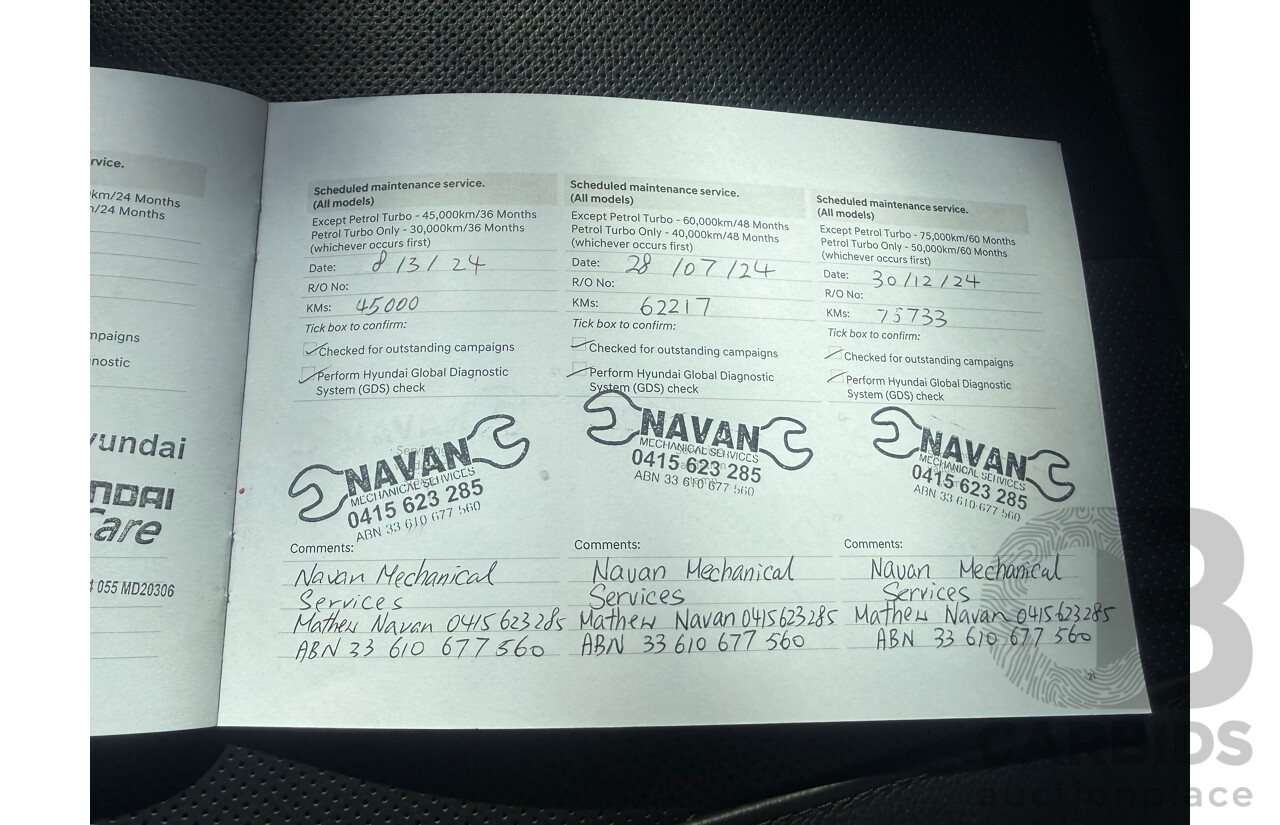 rvice.
km/24 Months
n/24 Months
mpaigns
nostic
yundai
NDAI
Care
055 MD20306
Scheduled maintenance service.
(All models)
Except Petrol Turbo - 45,000km/36 Months
Petrol Turbo Only - 30,000km/36 Months
(whichever occurs first)
Date: 8/3/24
R/O No:
KMs: 45000
Tick box to confirm:
Checked for outstanding campaigns
Perform Hyundai Global Diagnostic
System (GDS) check
NAVAN
MECHANICAL SERVICES
0415 623 285
ABN 33 610 677 560
Comments:
Navan Mechanical
Services
Mathew Navan 0415 623 285
ABN 33 610 677 560
Scheduled maintenance service.
(All models)
Except Petrol Turbo - 60,000km/48 Months
Petrol Turbo Only - 40,000km/48 Months
(whichever occurs first)
Date: 28/07/24
R/O No:
KMs: 62217
Tick box to confirm:
Checked for outstanding campaigns
Perform Hyundai Global Diagnostic
System (GDS) check
NAVAN
MECHANICAL SERVICES
0415 623 285
ABN 33 610 677 560
Comments:
Navan Mechanical
Services
Mathew Navan 0415 623 285
ABN 33 610 677 560
Scheduled maintenance service.
(All models)
Except Petrol Turbo - 75,000km/60 Months
Petrol Turbo Only - 50,000km/60 Months
(whichever occurs first)
Date: 30/12/24
R/O No:
KMs: 75733
Tick box to confirm:
Checked for outstanding campaigns
Perform Hyundai Global Diagnostic
System (GDS) check
NAVAN
MECHANICAL SERVICES
0415 623 285
ABN 33 610 677 560
Comments:
Navan Mechanical
Services
Mathew Navan 0415 623 285
ABN 33 610 677 560
21
CARBIDS
auctionplace